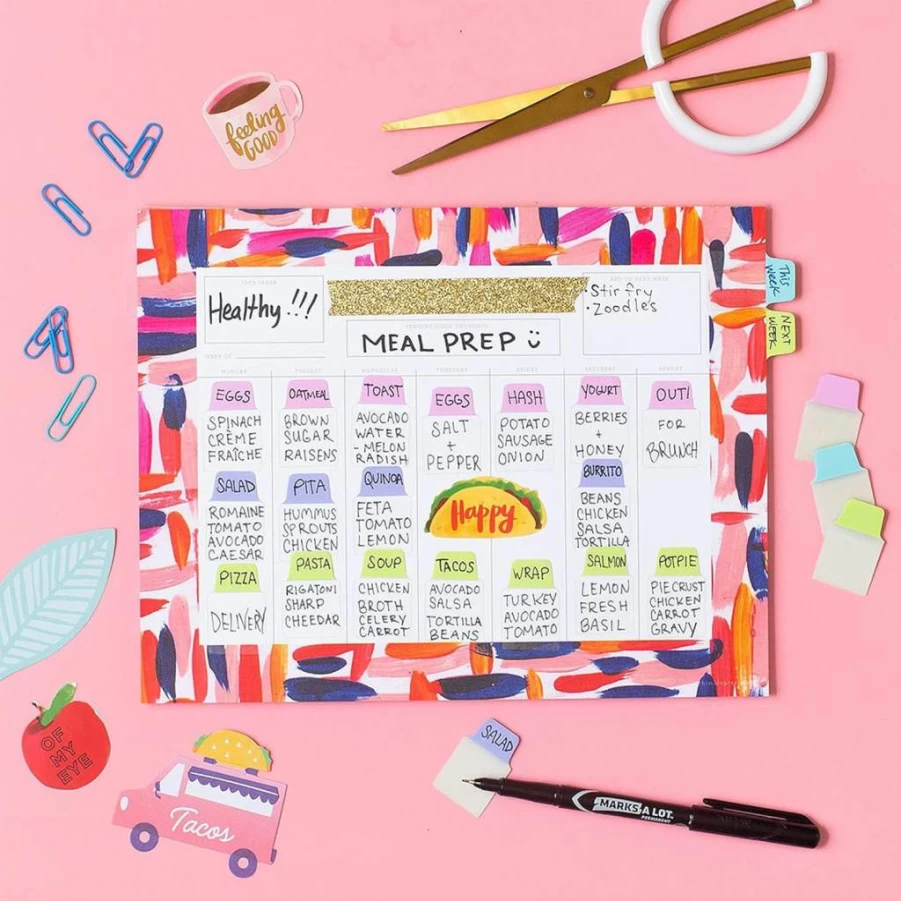 feeling
GOOD
This
Week
NEXT
WEEK
Healthy !!!
MEAL PREP
·Stir fry
·Zoodles
MONDAY
TUESDAY
WEDNESDAY
THURSDAY
FRIDAY
SATURDAY
SUNDAY
EGGS
SPINACH
CRÈME
FRAÎCHE
OATMEAL
BROWN
SUGAR
RAISENS
TOAST
AVOCADO
WATER
-MELON
RADISH
EGGS
SALT
+
PEPPER
HASH
POTATO
SAUSAGE
ONION
YOGURT
BERRIES
+
HONEY
OUT!
FOR
BRUNCH
SALAD
ROMAINE
TOMATO
AVOCADO
CAESAR
PITA
HUMMUS
SPROUTS
CHICKEN
QUINOA
FETA
TOMATO
LEMON
Happy
BURRITO
BEANS
CHICKEN
SALSA
TORTILLA
PIZZA
DELIVERY
PASTA
RIGATONI
SHARP
CHEEDAR
SOUP
CHICKEN
BROTH
CELERY
CARROT
TACOS
AVOCADO
SALSA
TORTILLA
BEANS
WRAP
TURKEY
AVOCADO
TOMATO
SALMON
LEMON
FRESH
BASIL
POTPIE
PIECRUST
CHICKEN
CARROT
GRAVY
OF
MY
EYE
Tacos
SALAD
MARKS A LOT
PERMANENT